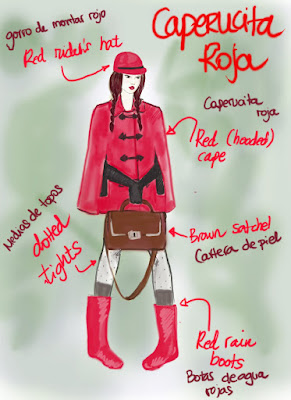 Caperucita
Roja
gorro de montar rojo
Red rider's hat
Caperucita
roja
Red (hooded)
cape
Medias de topos
dotted
tights
Brown satchel
Cartera de piel
Red rain
boots
Botas de agua
rojas